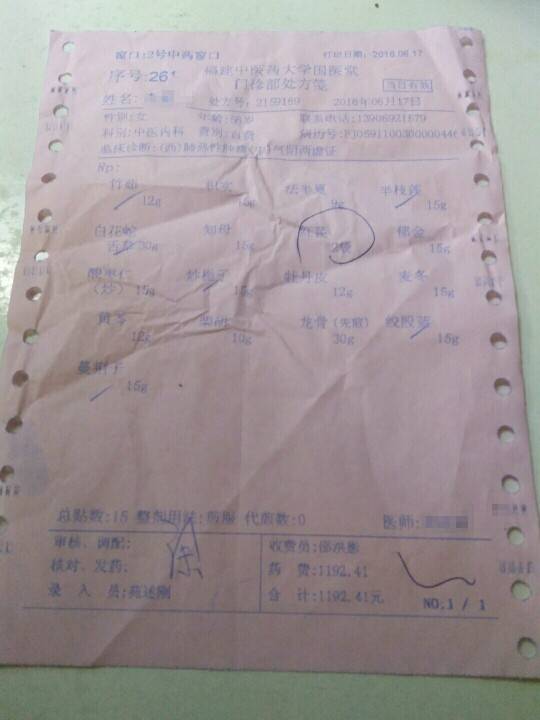 窗口:2号中药窗口 打印日期:2016.06.17
序号:261 福建中医药大学国医堂
门诊部处方笺 当日有效
姓名: 处方号:2159169 2016年06月17日
性别:女 年龄:56岁 联系电话:13906921879
科别:中医内科 费别:自费
临床诊断:(西)肺恶性肿瘤(中)气阴两虚证
Rp:
竹茹 枳实 法半夏 半枝莲
12g 15g 9g 15g
白花蛇 知母 郁金
舌草30g 15g 2袋 15g
酸枣仁 炒栀子 牡丹皮 麦冬
(炒) 15g 15g 12g 15g
黄芩 柴胡 龙骨(先煎) 绞股蓝
12g 10g 30g 15g
蔓荆子
15g
总贴数:15 整剂用法:煎服 代煎数:0 医师:
审核、调配: 收费员:邵琪影
核对、发药: 药 费:1192.41
录 入 员:苑述刚 合 计:1192.41元 NO.1 / 1